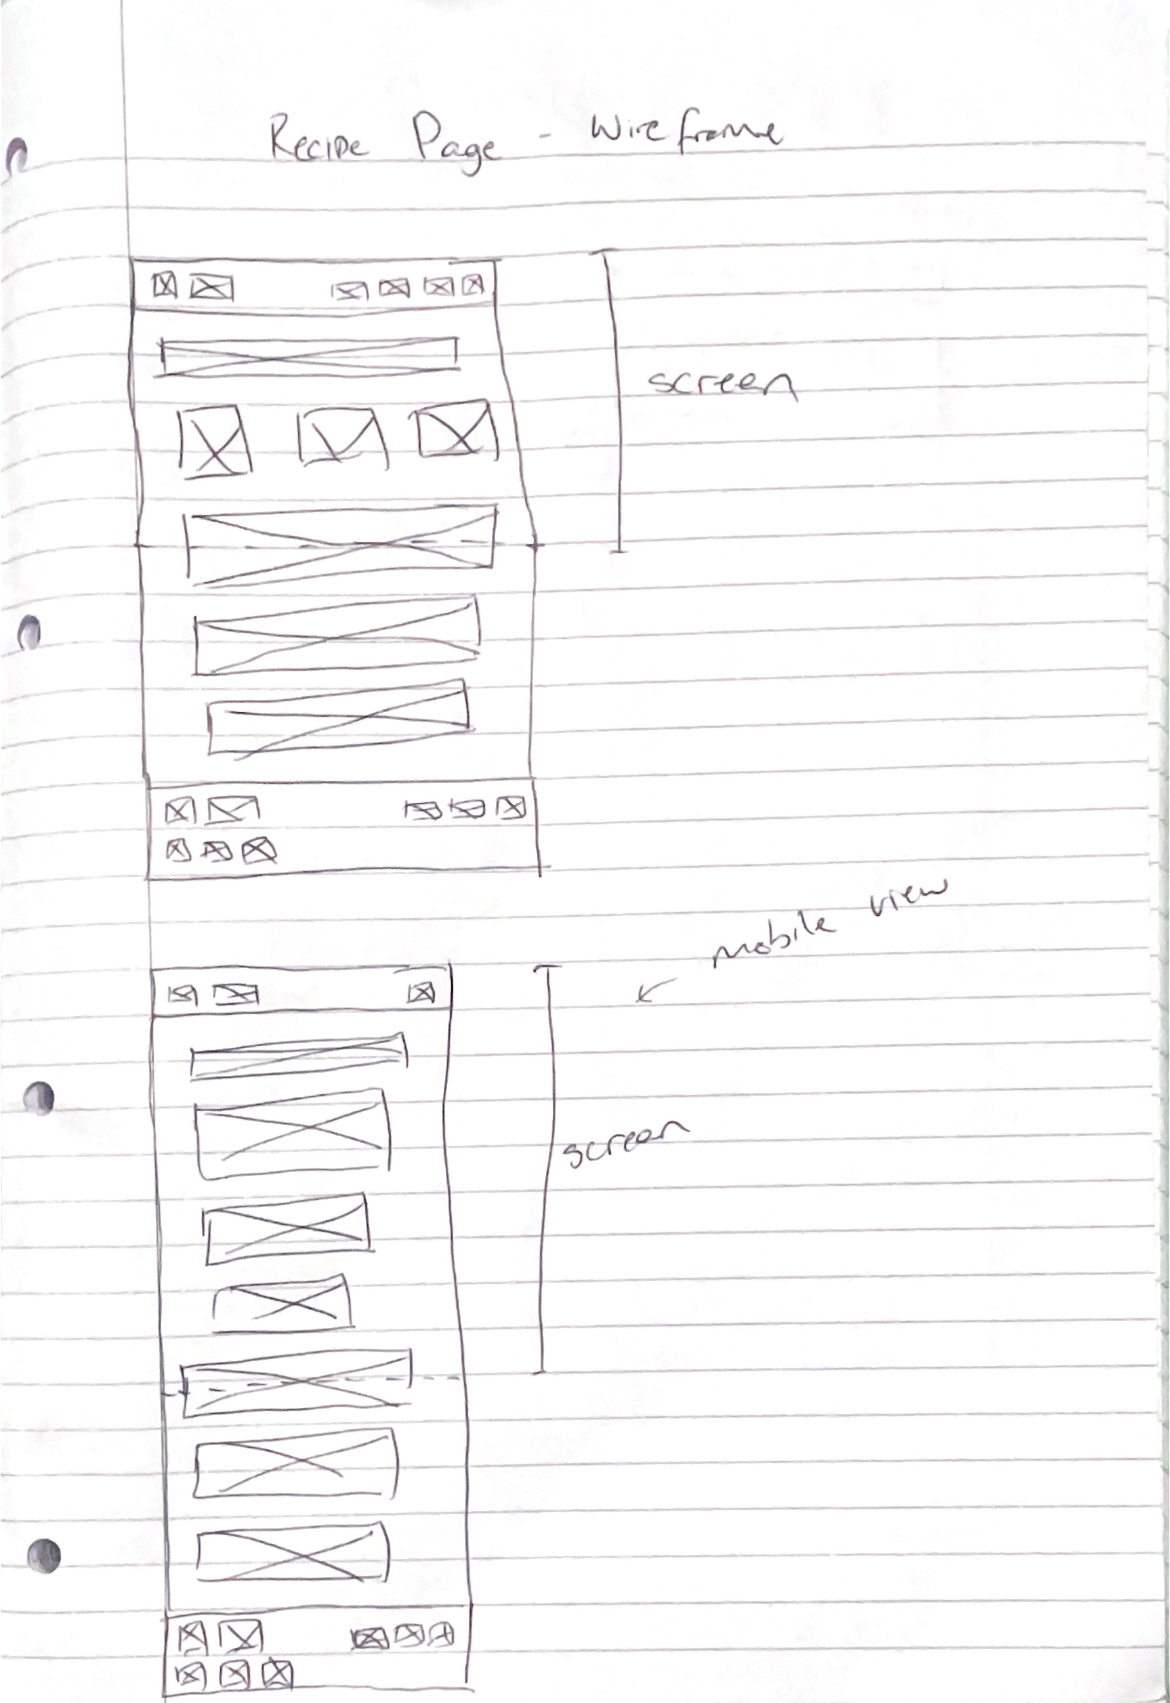 Recipe Page - Wireframe
screen
mobile view
screen